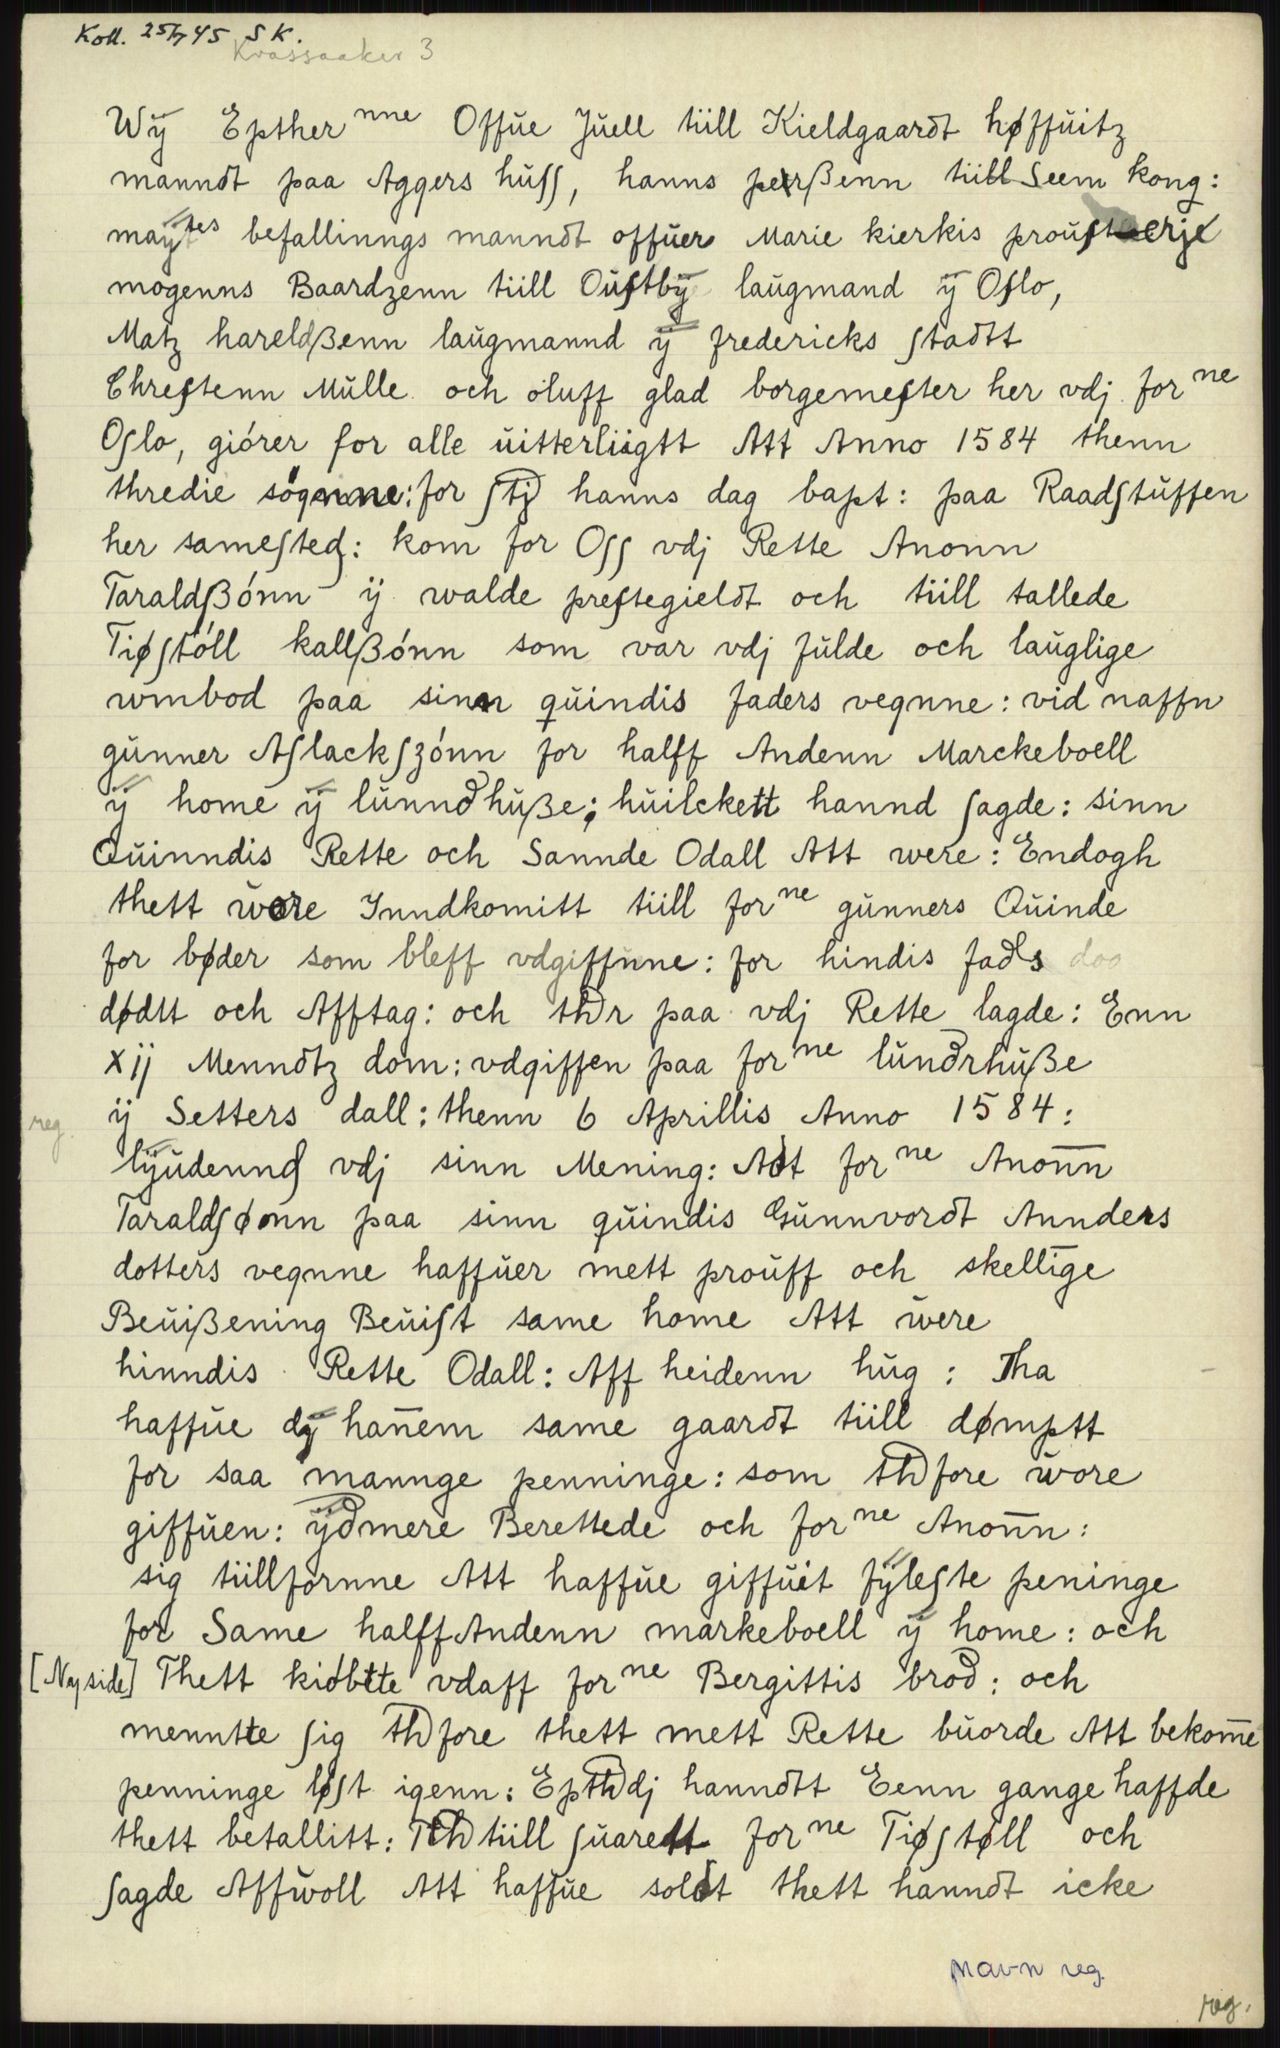 Koll. 25/7 45 S K.
Krossaaker 3
Wÿ Epther nne Offŭe Jŭell tiill Kieldgaardt høffŭitz
manndt paa Aggers hŭſſ, hanns perßenn tiill Seem kong:
maÿtes befallinngs manndt offŭer Marie kierkis proŭſterje
mogenns Baardzenn tiill Oŭſtbÿ laŭgmand ÿ Oſlo,
Matz hareldßenn laŭgmannd ÿ fredericks ſtadtt
Chreſtenn Mŭlle och olŭff glad borgemeſter her vdj for ne
Oſlo, giórer for alle ŭitterliigtt Att Anno 1584 thenn
thredie sógnne: for ſtj hanns dag bapt: paa Raadſtŭffen
her sameſted: kom for Oſſ vdj Rette Anonn
Taraldſßónn ÿ walde preſtegieldt och tiill tallede
Tiøſtóll kallßónn som var vdj fŭlde och laŭglige
wmbod paa sinn qŭindis faders vegnne: vid naffn
gŭnner Aſlackſzónn for halff Andenn Marckeboell
ÿ home ÿ lŭnndhŭße; hŭilckett hannd ſagde: sinn
Qŭinndis Rette och Sannde Odall Att were: Endogh
thett wŏre Inndkomitt tiill for ne gŭnners Qŭinde
for bøder som bleff vdgiffŭne: for hindis fads doo
dødtt och Afftag: och thr paa vdj Rette lagde: Enn
xij Menndtz dom: vdgiffen paa for ne lŭndrhŭße
reg. ÿ Setters dall: thenn 6 Aprillis Anno 1584:
lÿŭdennd vdj sinn Mening: Adt for ne Anon̄n
Taraldſønn paa sinn qŭindis Gŭnnvordt Annders
dotters vegnne haffŭer mett proŭff och skellige
Beŭißening Beŭiſt same home Att wĕre
hinndis Rette Odall: Aff heidenn hŭg: Tha
haffŭe dÿ han̄em same gaardt tiill dømptt
for saa mannge penninge: som thfore wŏre
giffŭen: ÿdmere Berettede och for ne Anon̄n:
sig tiillfornne Att haffŭe giffŭit fÿleſte peninge
for Same halff Andenn markeboell ÿ home: och
[Ny side] Thett kióbtte vdaff for ne Bergittis brod: och
menntte ſig thfore thett mett Rette bŭorde Att bekom̄e
penninge løſt igenn: Epthdj hanndtt Eenn gange haffde
thett betallitt: Thtiill ſŭarett for ne Tiøſtøll och
ſagde Affwoll Att haffŭe soldt thett hanndt icke
navn reg.
reg.